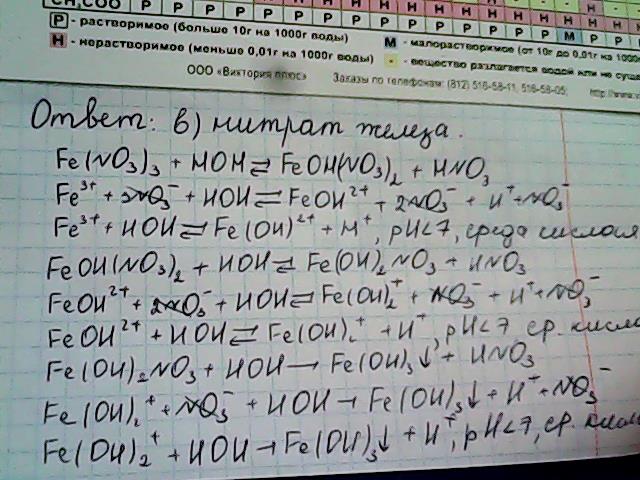 CH₃COO P P P P P P P P
P - растворимое (больше 10г на 1000г воды)
H - нерастворимое (меньше 0,01г на 1000г воды)
M - малорастворимое (от 10г до 0,01г на 1000
- вещество разлагается водой или не сущ
ООО «Виктория плюс» Заказы по телефонам: (812) 516-58-11, 516-58-05; http://www.v
Ответ: в) нитрат железа.
Fe(NO₃)₃ + HOH ⇄ FeOH(NO₃)₂ + HNO₃
Fe³⁺ + 3NO₃⁻ + HOH ⇄ FeOH²⁺ + 2NO₃⁻ + H⁺ + NO₃⁻
Fe³⁺ + HOH ⇄ Fe(OH)²⁺ + H⁺, pH<7, среда кислая
FeOH(NO₃)₂ + HOH ⇄ Fe(OH)₂NO₃ + HNO₃
FeOH²⁺ + 2NO₃⁻ + HOH ⇄ Fe(OH)₂⁺ + NO₃⁻ + H⁺ + NO₃⁻
FeOH²⁺ + HOH ⇄ Fe(OH)₂⁺ + H⁺, pH<7 ср. кисла
Fe(OH)₂NO₃ + HOH → Fe(OH)₃↓ + HNO₃
Fe(OH)₂⁺ + NO₃⁻ + HOH → Fe(OH)₃↓ + H⁺ + NO₃⁻
Fe(OH)₂⁺ + HOH → Fe(OH)₃↓ + H⁺, pH<7, ср. кисл